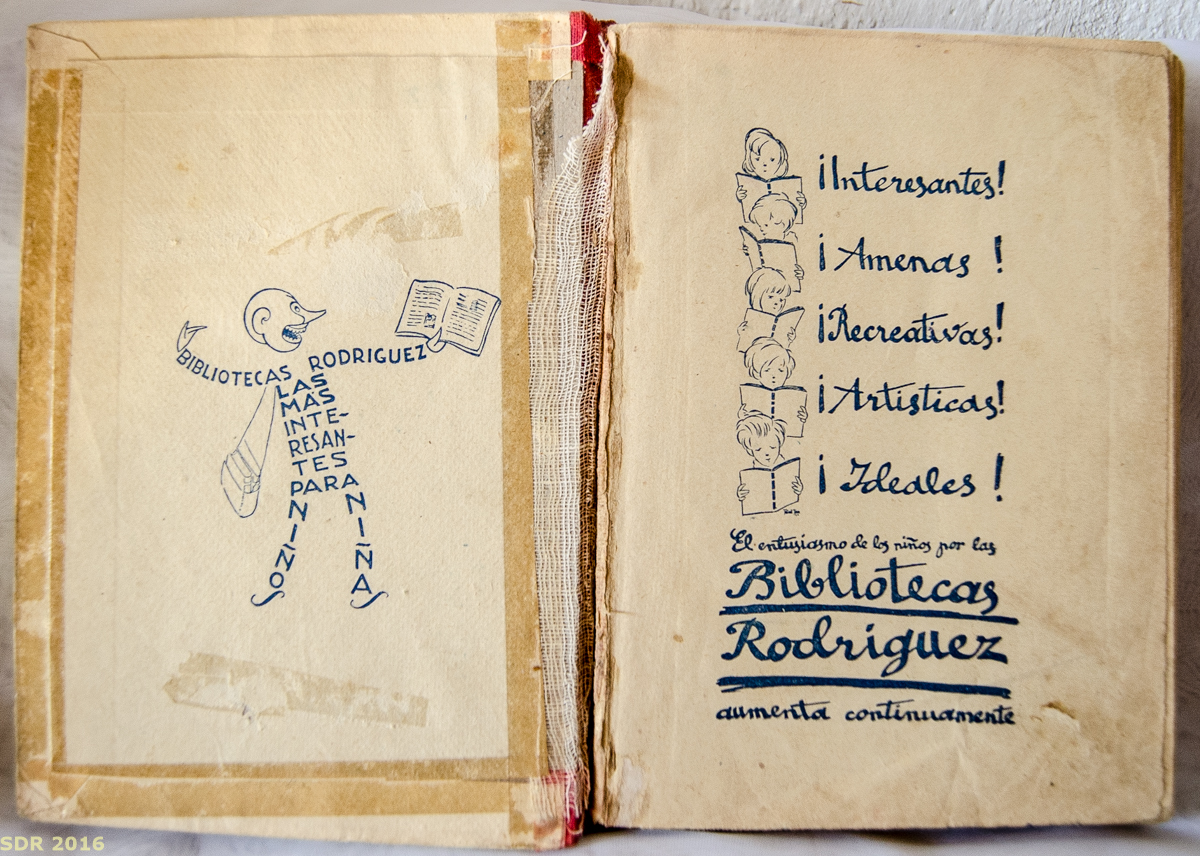 BIBLIOTECAS RODRIGUEZ
LAS
MAS
INTE-
RESAN-
TES
PARA
NIÑOS
NIÑAS
¡Interesantes!
¡Amenas!
¡Recreativas!
¡Artisticas!
¡Ideales!
El entusiasmo de los niños por las
Bibliotecas
Rodriguez
aumenta continuamente
SDR 2016